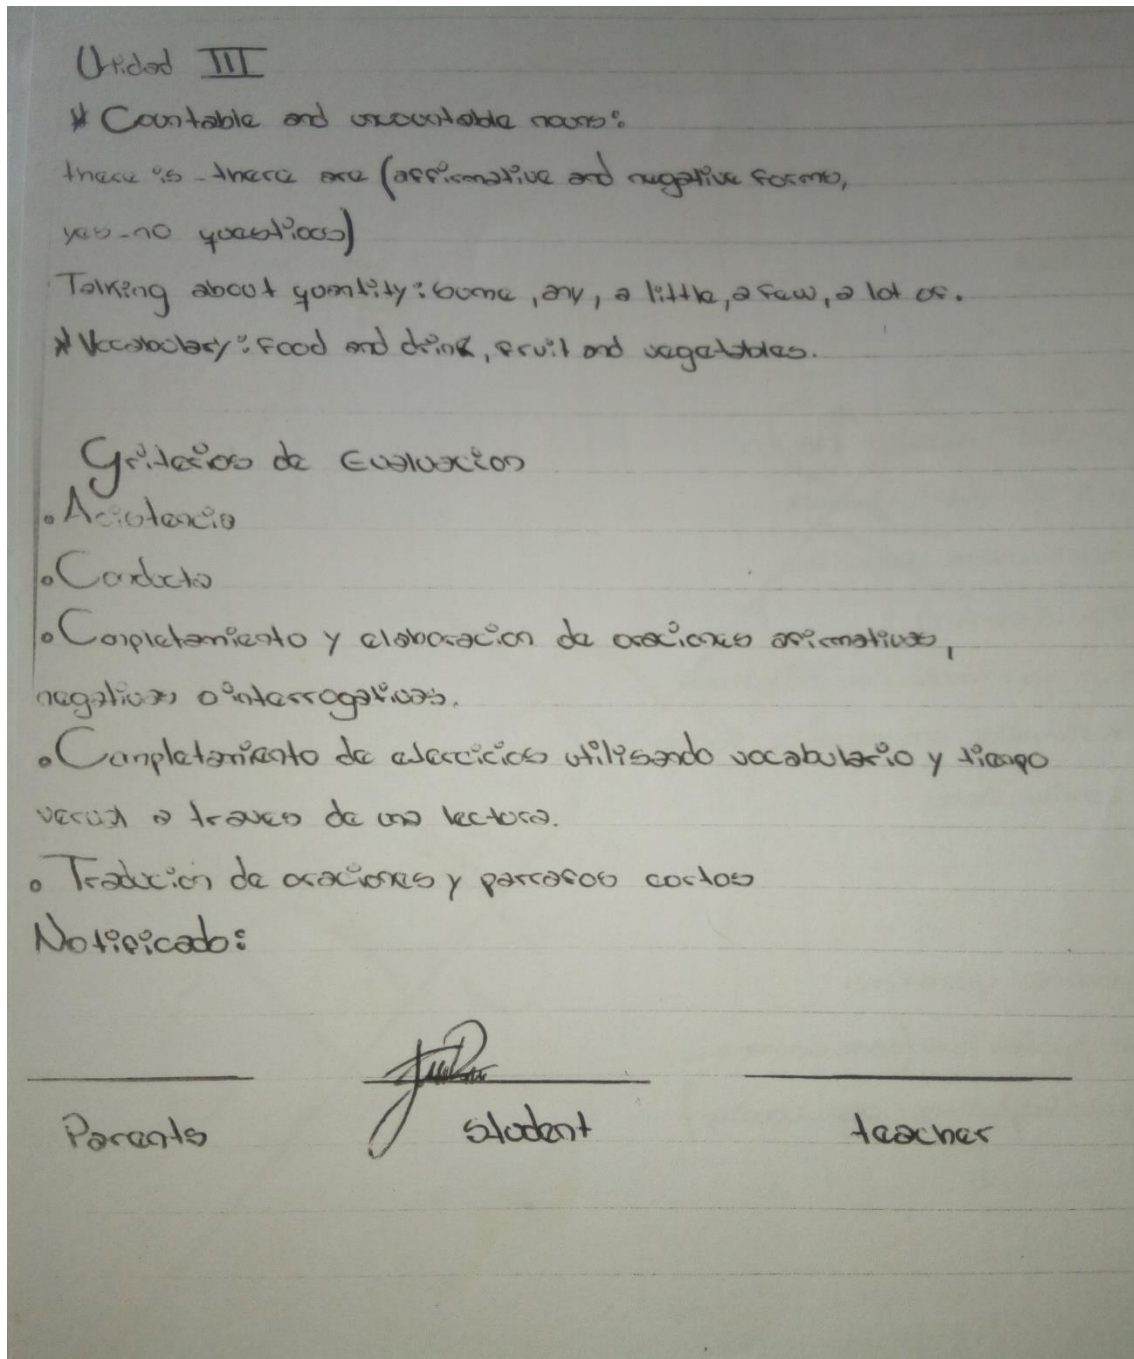 Unidad III
* Countable and uncountable nouns:
there is - there are (affirmative and negative forms,
yes-no questions)
Talking about quantity: some, any, a little, a few, a lot of.
* Vocabulary: Food and drink, fruit and vegetables.
Criterios de Evaluacion
• Acistencia
• Conducta
• Conpletamiento y elaboracion de oraciones afirmativas,
negativas o interrogativas.
• Conpletamiento de ejercicios utilisando vocabulario y tiempo
a traves de una lectura.
• Traducion de oraciones y parrafos cortos
Notificado:
Parents student teacher